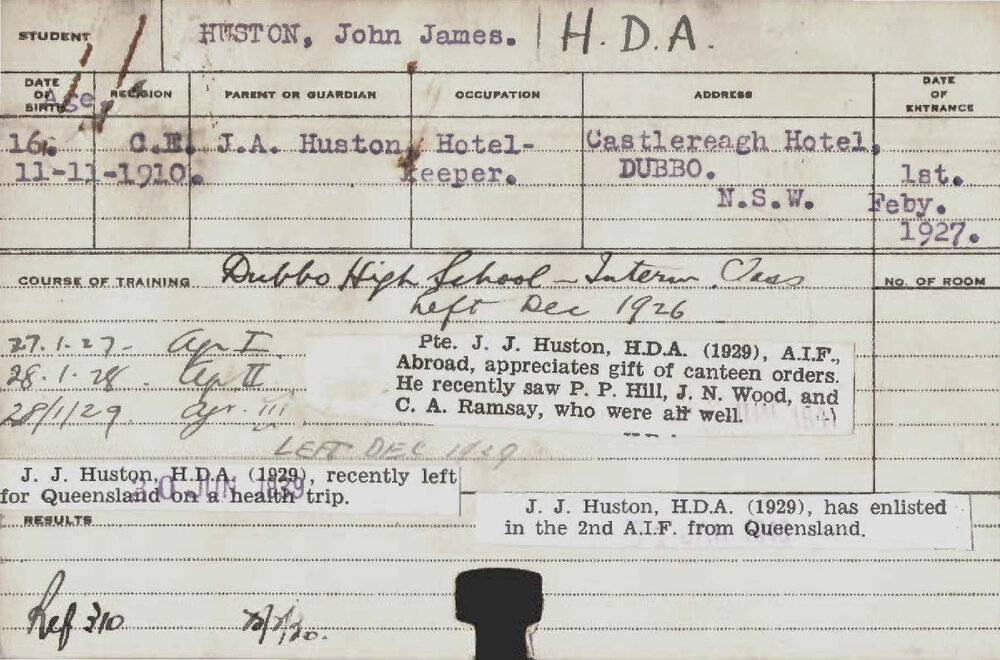 STUDENT HUSTON, John James. H.D.A.
DATE OF BIRTH Age RELIGION PARENT OR GUARDIAN OCCUPATION ADDRESS DATE OF ENTRANCE
16. C.E. J.A. Huston Hotel- Castlereagh Hotel,
11-11-1910. keeper. DUBBO. 1st.
N.S.W. Feby.
1927.
COURSE OF TRAINING Dubbo High School - Interm. Class NO. OF ROOM
Left Dec 1926
27.1.27- Agr I
28.1.28. Agr II
28/1/29 Agr. III
Pte. J. J. Huston, H.D.A. (1929), A.I.F.,
Abroad, appreciates gift of canteen orders.
He recently saw P. P. Hill, J. N. Wood, and
C. A. Ramsay, who were all well.
LEFT DEC 1929
J. J. Huston, H.D.A. (1929), recently left
for Queensland on a health trip.
30 JUN 1939
J. J. Huston, H.D.A. (1929), has enlisted
in the 2nd A.I.F. from Queensland.
RESULTS
Ref 310